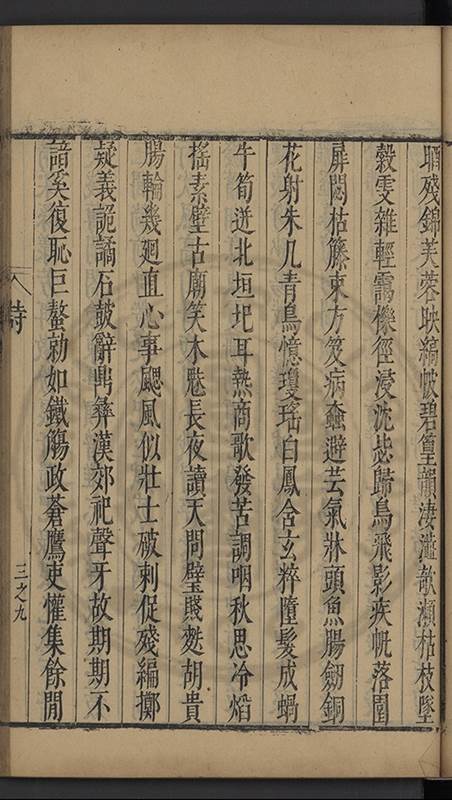 殘錦芙蓉映縞帔碧篁韻淒瀣欹瀨枯枝墜
縠雯雜輕靄條徑浸沈毖歸鳥飛影疾帆落圊
屝閟枯籐束方笈病蠡避芸氣牀頭魚腸劒銅
花射朱几青鳥憶瓊瑤白鳳含玄粹墮髮成蝸
牛筍迸北垣圯耳熱商歌發苦調咽秋思冷焰
搖素壁古廟笑木魅長夜讀天問璧賤麩胡貴
腸輪幾廻直心事颶風似壯士破剌促殘編擲
疑義詭譎石鼓辭鼎彝漢郊祀聲牙故期期不
諳奚復恥巨鼇勑如鐵觴政蒼鷹吏懽集餘閒
詩
三之九